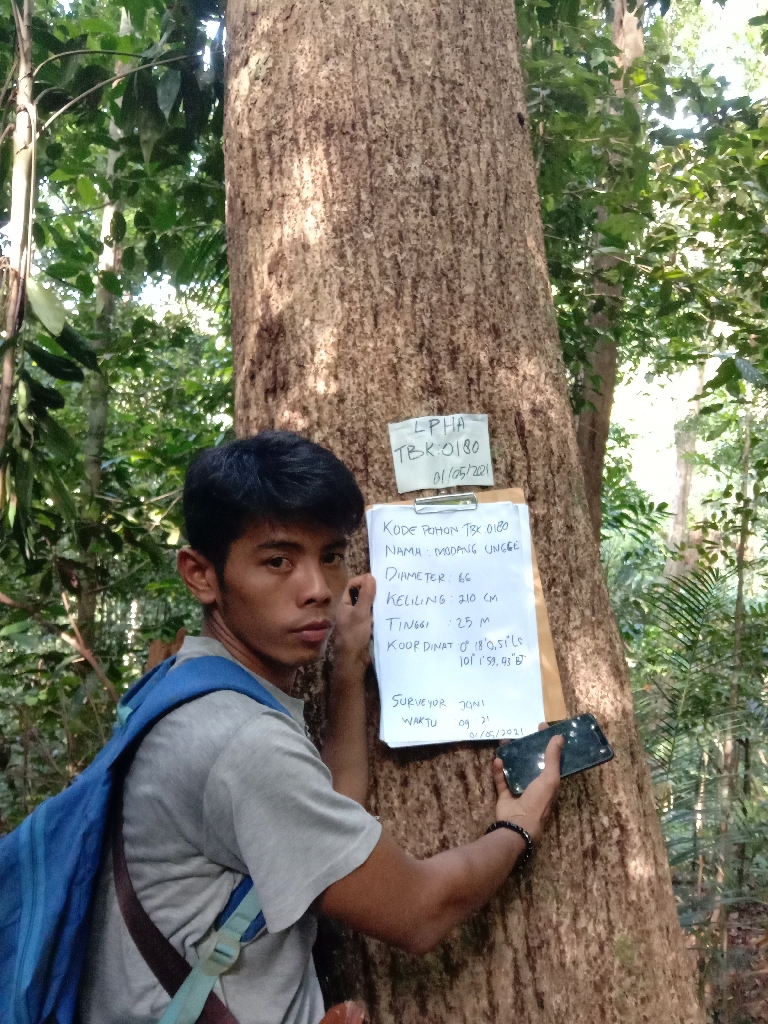 LPHA
TBK.0180
01/05/2021
KODE POHON TBK.0180
NAMA : MODANG UNGGE
DIAMETER : 66
KELILING : 210 CM
TINGGI : 25 M
KOORDINAT 0° 18' 0,51" LS
101° 1' 59,93" BT
SURVEYOR JONI
WAKTU : 09 21
01/05/2021